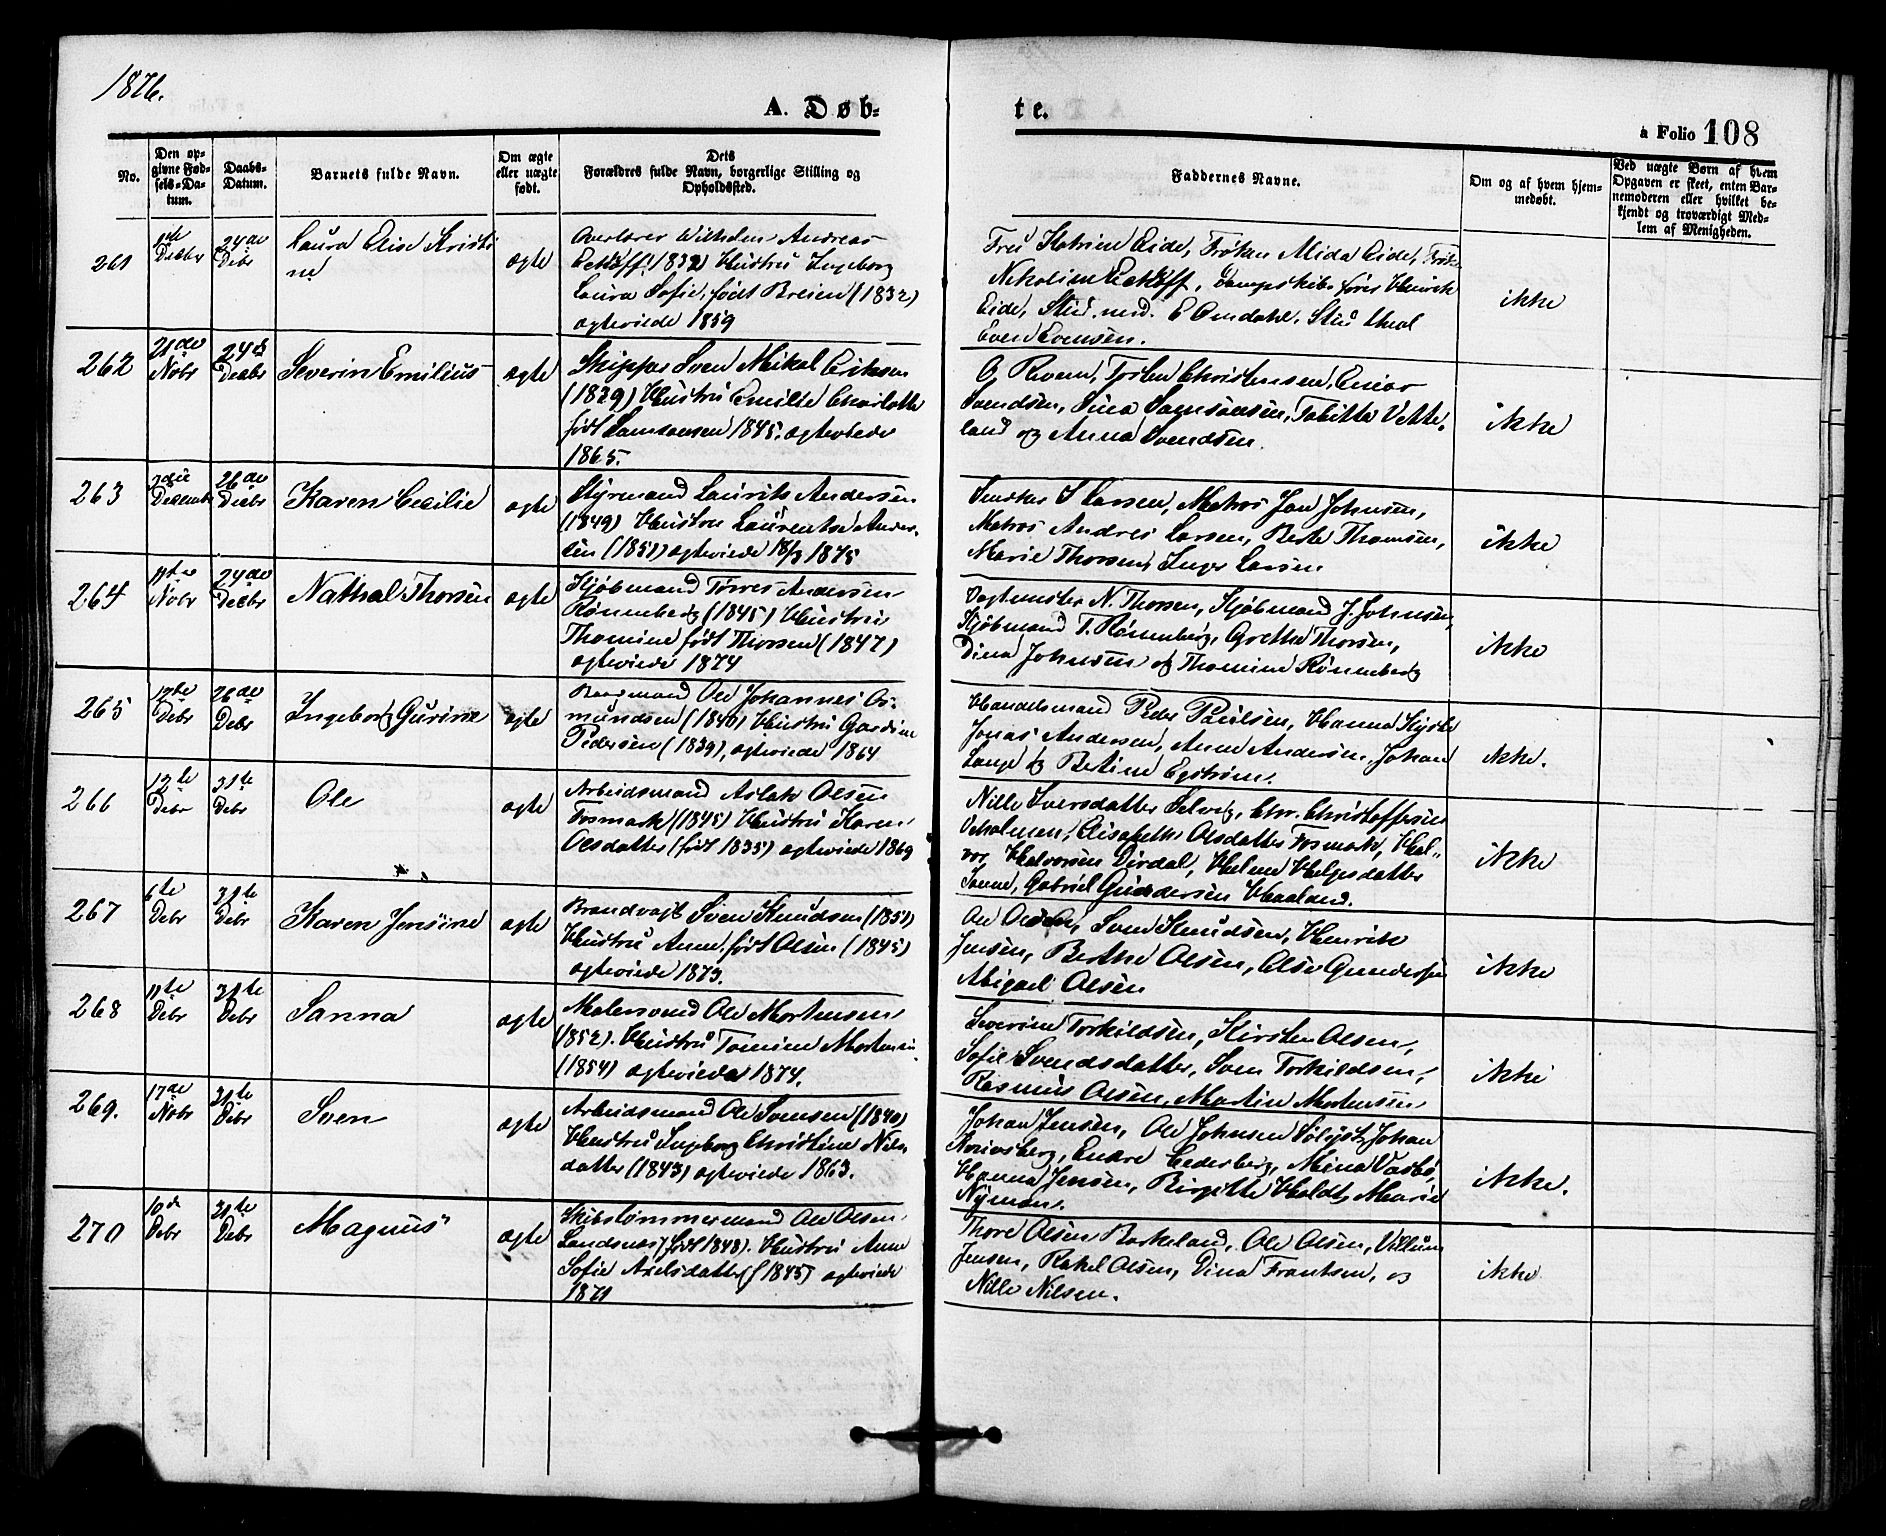 1876.
A. Døb-
te.
a Folio 108
No.
Den op-
givne Fød-
sels-Da-
tum.
Daabs-
Datum.
Barnets fulde Navn.
Om ægte
eller uægte
født.
Dets
Forældres fulde Navn, borgerlige Stilling og
Opholdssted.
Faddernes Navne.
Om og af hvem hjem-
medøbt.
Ved uægte Børn af hvem
Opgaven er skeet, enten Bar-
nemoderen eller hvilket be-
kjendt og troværdigt Med-
lem af Menigheden.
261
Decbr
24de
Debr
Laura Elise Kristi
ne
ægte
Overlærer Wilhelm Andreas
Eckhoff (1832) Hustru Ingeborg
Laura Sofie, født Breien (1832)
ægteviede 1859
Katrine Eide, Frøken Mida Eide,
Nikoline Eckhoff, Dampskibsfører Henrik
Eide, Stud. med. E Omdahl, Stud theol
Even Evensen.
ikke
262
21de
Nobr
24de
Decbr
Severin Emilius
ægte
Skipper Sven Mikal Eriksen
(1829) Hustru Emilie Charlotte
født Samsonsen 1845, ægteviede
1865.
O Revem, Torben Christensen, Einar
Svendsen, Sina Samsonsen, Tabitha Vette-
land og Anna Svendsen.
ikke
263
2die
Decembr
26de
Decbr
Karen Cecilie
ægte
Styrmand Laurits Andersen
(1849) Hustru Laurentse Ander-
sen (1851) ægteviede 18/3 1875
Snedker S Larsen, Matros Jan Johnsen,
Matros Andres Larsen, Berte Thomsen,
Marie Thorsen, Inger Larsen
ikke
264
11te
Nobr
24de
Decbr
Nathal Thorsen
ægte
Kjøbmand Tørres Andersen
Rønneberg (1845) Hustru
Thomine født Thorsen (1847)
ægteviede 1874
Vagtmester N. Thorsen, Kjøbmand J. Johnsen,
Kjøbmand T. Rønneberg, Grethe Thorsen,
Dina Johnsen og Thomine Rønneberg
ikke
265
12te
Debr
26de
Debr
Ingeborg Gurine
ægte
Baadsmand Ole Johannes Os-
mundsen (1840) Hustru Gardine
Pedersen (1839), ægteviede 1864
Handelsmand Peder Paulsen, Hanna
Jonas Andersen, Anne Andersen, Johan
Lange og Bertine Egstrøm.
ikke.
266
12te
Debr
31te
Debr
Ole
ægte
Arbeidsmand Aslak Olsen
Fosmark (1845) Hustru Karen
Olsdatter (født 1835) ægteviede 1869
Nille Sversdatter Selvig, Chr. Christoffersen
Veholmen, Elisabeth Olsdatter Fosmark, Hal-
vor Halvorsen Dirdal, Helene Helgesdatter
Sanne, Gabriel Gundersen Haaland.
ikke
267
6te
Debr
31te
Debr
Karen Jensine
ægte
Brandvagt Sven Knudsen (1851)
Hustru Anne, født Olsen (1845)
ægteviede 1873.
Ole Olsen, Sven Knudsen, Henrik
Jensen, Berthe Olsen, Else Gundersen
Abigael Olsen
ikke
268
11te
Debr
31te
Debr
Sanna
ægte
Malersvend Ole Mortensen
(1852). Hustru Tomine Mortensen
(1854) ægteviede 1874.
Severine Torkildsen, Kirsten Olsen,
Sofie Svendsdatter, Sven Torkildsen,
Rasmus Olsen, Martin Mortensen
ikke
269.
17de
Nobr
31te
Debr
Sven
ægte
Arbeidsmand Ole Svensen (1840)
Hustru Ingeborg Christine Nils-
datter (1843) ægteviede 1863.
Johan Jensen, Ole Johnsen Sølyst, Johan
Endre Cederberg, Mina Vasbø,
Hanna Jensen, Birgitte Holdt, Marie
Nyman.
ikke.
270
10de
Debr
31te
Debr
Magnus
ægte
Skibstømmermand Ole Olsen
Landsnæs (født 1848). Hustru Anne
Sofie Axelsdatter (f 1845) ægteviede
1871
Thore Olsen Barkeland, Ole Olsen, Villum
Jensen, Rakel Olsen, Dina Frantsen, og
Nille Nilsen.
ikke